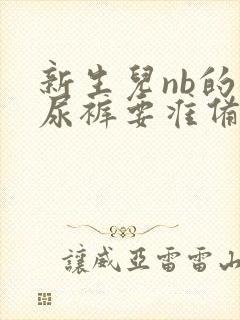 新生兒nb的
尿褲要准備
讓威亞雷雷山